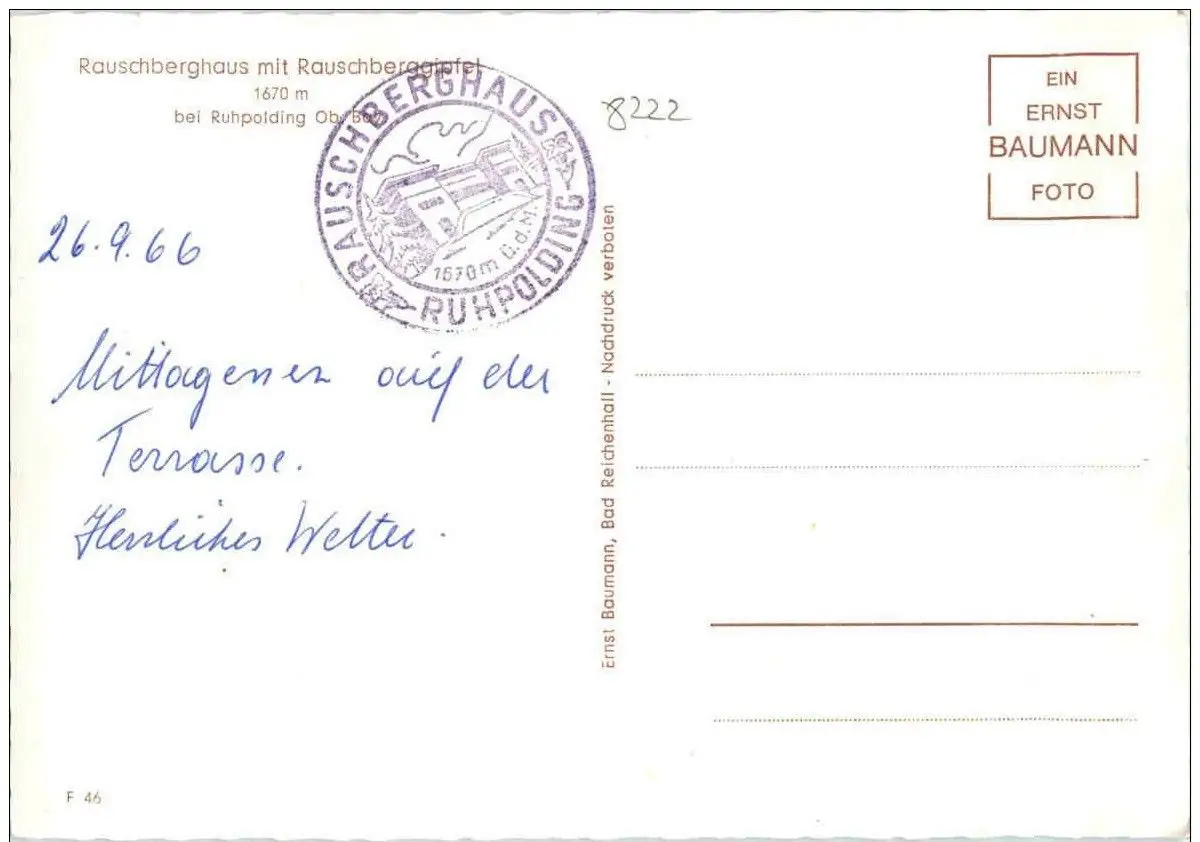 Rauschberghaus mit Rauschberggipfel
1670 m
bei Ruhpolding Ob. Bay.
RAUSCHBERGHAUS
1670m ü.d.M.
RUHPOLDING
8222
EIN
ERNST
BAUMANN
FOTO
26.9.66
Mittagessen auf der
Terrasse.
Herrliches Wetter.
Ernst Baumann, Bad Reichenhall - Nachdruck verboten
F 46